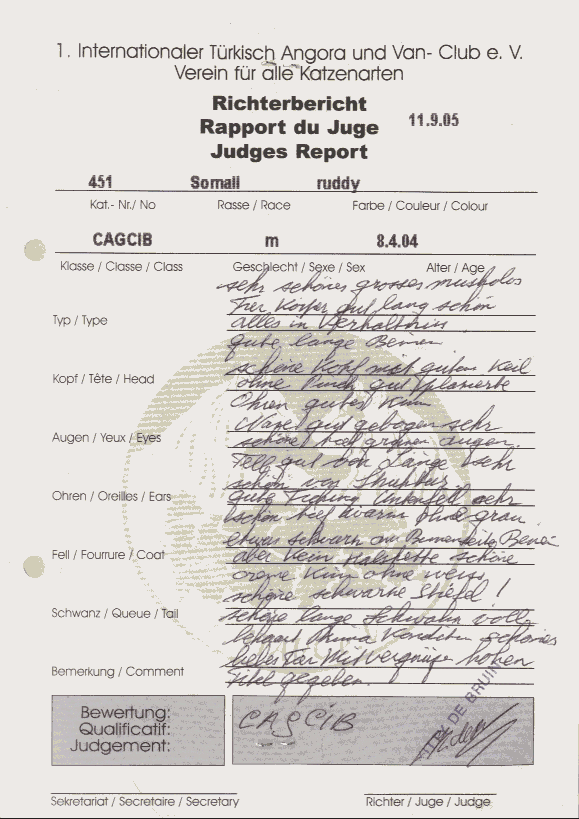 1. Internationaler Türkisch Angora und Van- Club e. V.
Verein für alle Katzenarten
Richterbericht
Rapport du Juge
Judges Report
11.9.05
451 Somali ruddy
Kat.- Nr./ No Rasse / Race Farbe / Couleur / Colour
CAGCIB m 8.4.04
Klasse / Classe / Class Geschlecht / Sexe / Sex Alter / Age
sehr schönes grosses muskulos
Tier Körper gut lang schön
Typ / Type
alles in Verhältnis
gute lange Beinen
schöne Kopf mit guten Keil
Kopf / Tête / Head
ohne Pinch gut plazierte
Ohren gutes Kinn
Nase gut gebogen sehr
Augen / Yeux / Eyes
schöne tief grünen augen.
Fell gut von Länge sehr
schön von Struktur
Ohren / Oreilles / Ears
gute Ticking Unterfell sehr
schön tief warm ohne grau
etwas schwarz am Beinen
Fell / Fourrure / Coat
aber kein schöne
creme Kinn ohne weiss,
schöne schwarze Stiefel !
Schwanz / Queue / Tail
schöne lange Schwahn voll
behaart Kondition schönes
Bemerkung / Comment
liebes Tier Mit vergnügen hohen
Titel gegeben.
Bewertung:
Qualificatif:
Judgement:
CAGCIB
DE BRUIN
Sekretariat / Secretaire / Secretary Richter / Juge / Judge